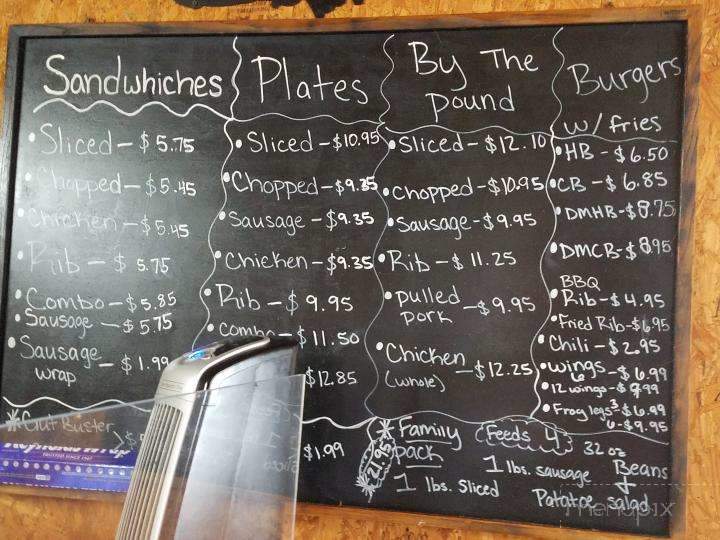 Sandwhiches
• Sliced - $5.75
• Chopped - $5.45
• Chicken - $5.45
• Rib - $5.75
• Combo - $5.85
• Sausage - $5.75
• Sausage wrap - $1.99
* Gut Buster
Plates
• Sliced - $10.95
• Chopped - $9.35
• Sausage - $9.35
• Chicken - $9.35
• Rib - $9.95
• Combo - $11.50
$12.85
$1.99
By The
pound
• Sliced - $12.10
• Chopped - $10.95
• Sausage - $9.95
• Rib - $11.25
• pulled
pork - $9.95
• Chicken
(whole) - $12.25
Burgers
w/ fries
• HB - $6.50
• CB - $6.85
• DMHB - $8.75
• DMCB - $8.95
BBQ
• Rib - $4.95
• Fried Rib - $6.95
• Chili - $2.95
• wings 6 - $6.99
• 12 wings - $9.99
• Frog legs 3 - $6.99
6 - $9.95
* Family
pack
Feeds 4
21.95
1 lbs. Sliced
1 lbs. sausage
32 oz
Beans
+
Patatoe salad
Menupix